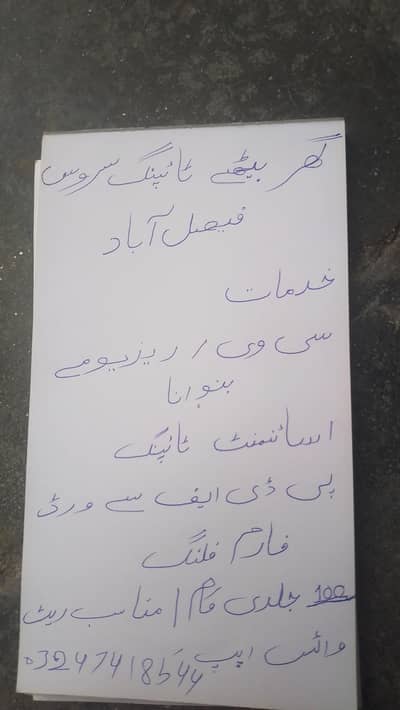 گھر بیٹھے ٹائپنگ سروس
فیصل آباد
خدمات
سی وی / ریزیومے
بنوانا
اسائنمنٹ ٹائپنگ
پی ڈی ایف سے ورڈ
فارم فلنگ
جلدی کام / مناسب ریٹ
واٹس ایپ